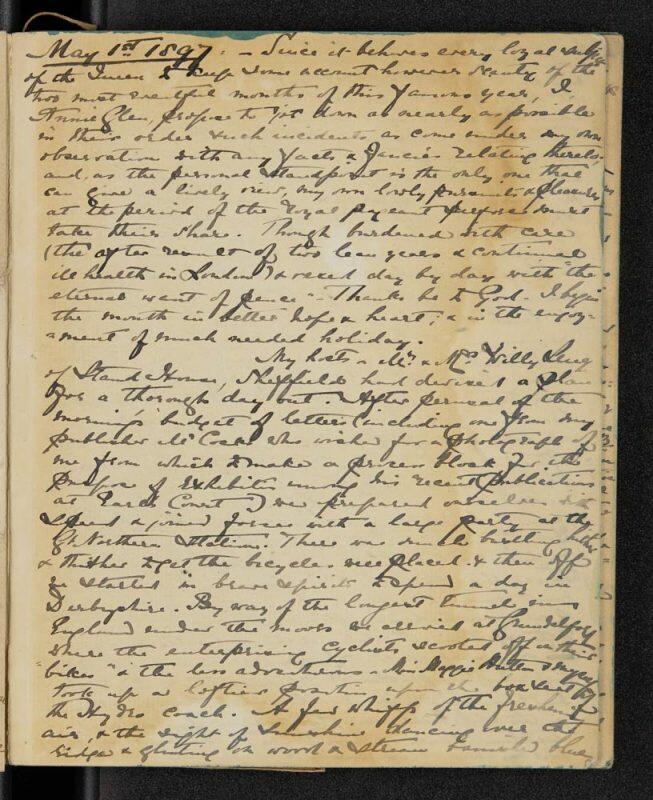 May 1st 1897: - Since it behoves every loyal subject
of the Queen to keep some account however scanty of the
two most eventful months of this famous year, I
Annie Glen, propose to jot down as nearly as possible
in their order & such incidents as come under my own
observation with any facts & fancies relating thereto,
and, as the personal standpoint is the only one that
can give a lively view, my own lowly pursuits & pleasures
at the period of the royal pageant purposes must
take their share. Though burdened with care
(the after result of two lean years & continued
ill health in London) & vexed day by day with "the
eternal want of pence" - Thanks be to God - I begin
the month in better hope & heart; & in the enjoy-
ment of much needed holiday.
My hosts - Mr. & Mrs Willy
of Stand House, Sheffield had devised a plan
for a thorough day out. After perusal of the
morning's budget of letters (including one from my
publisher Mr who wishes for a photograph of
me from which to make a process block for the
purpose of exhibition among his recent publications
at Earls Court) we prepared ourselves with
speed & joined forces with a large party at the
Gt. Northern Station. There was much bustling hither
& thither to get the bicycles well placed & then off
we started in brave spirits to spend a day in
Derbyshire. By way of the longest tunnel in
England under the moors we arrived at Grindleford
where the enterprising cyclists scooted off on their
"bikes" & the less adventurous - Miss Maggie & myself
took up a loftier position upon the box seat of
the Hydro coach. A few whiffs of the freshening
air, & the sight of sunshine dancing over the
ridge & glinting on wood & stream blue